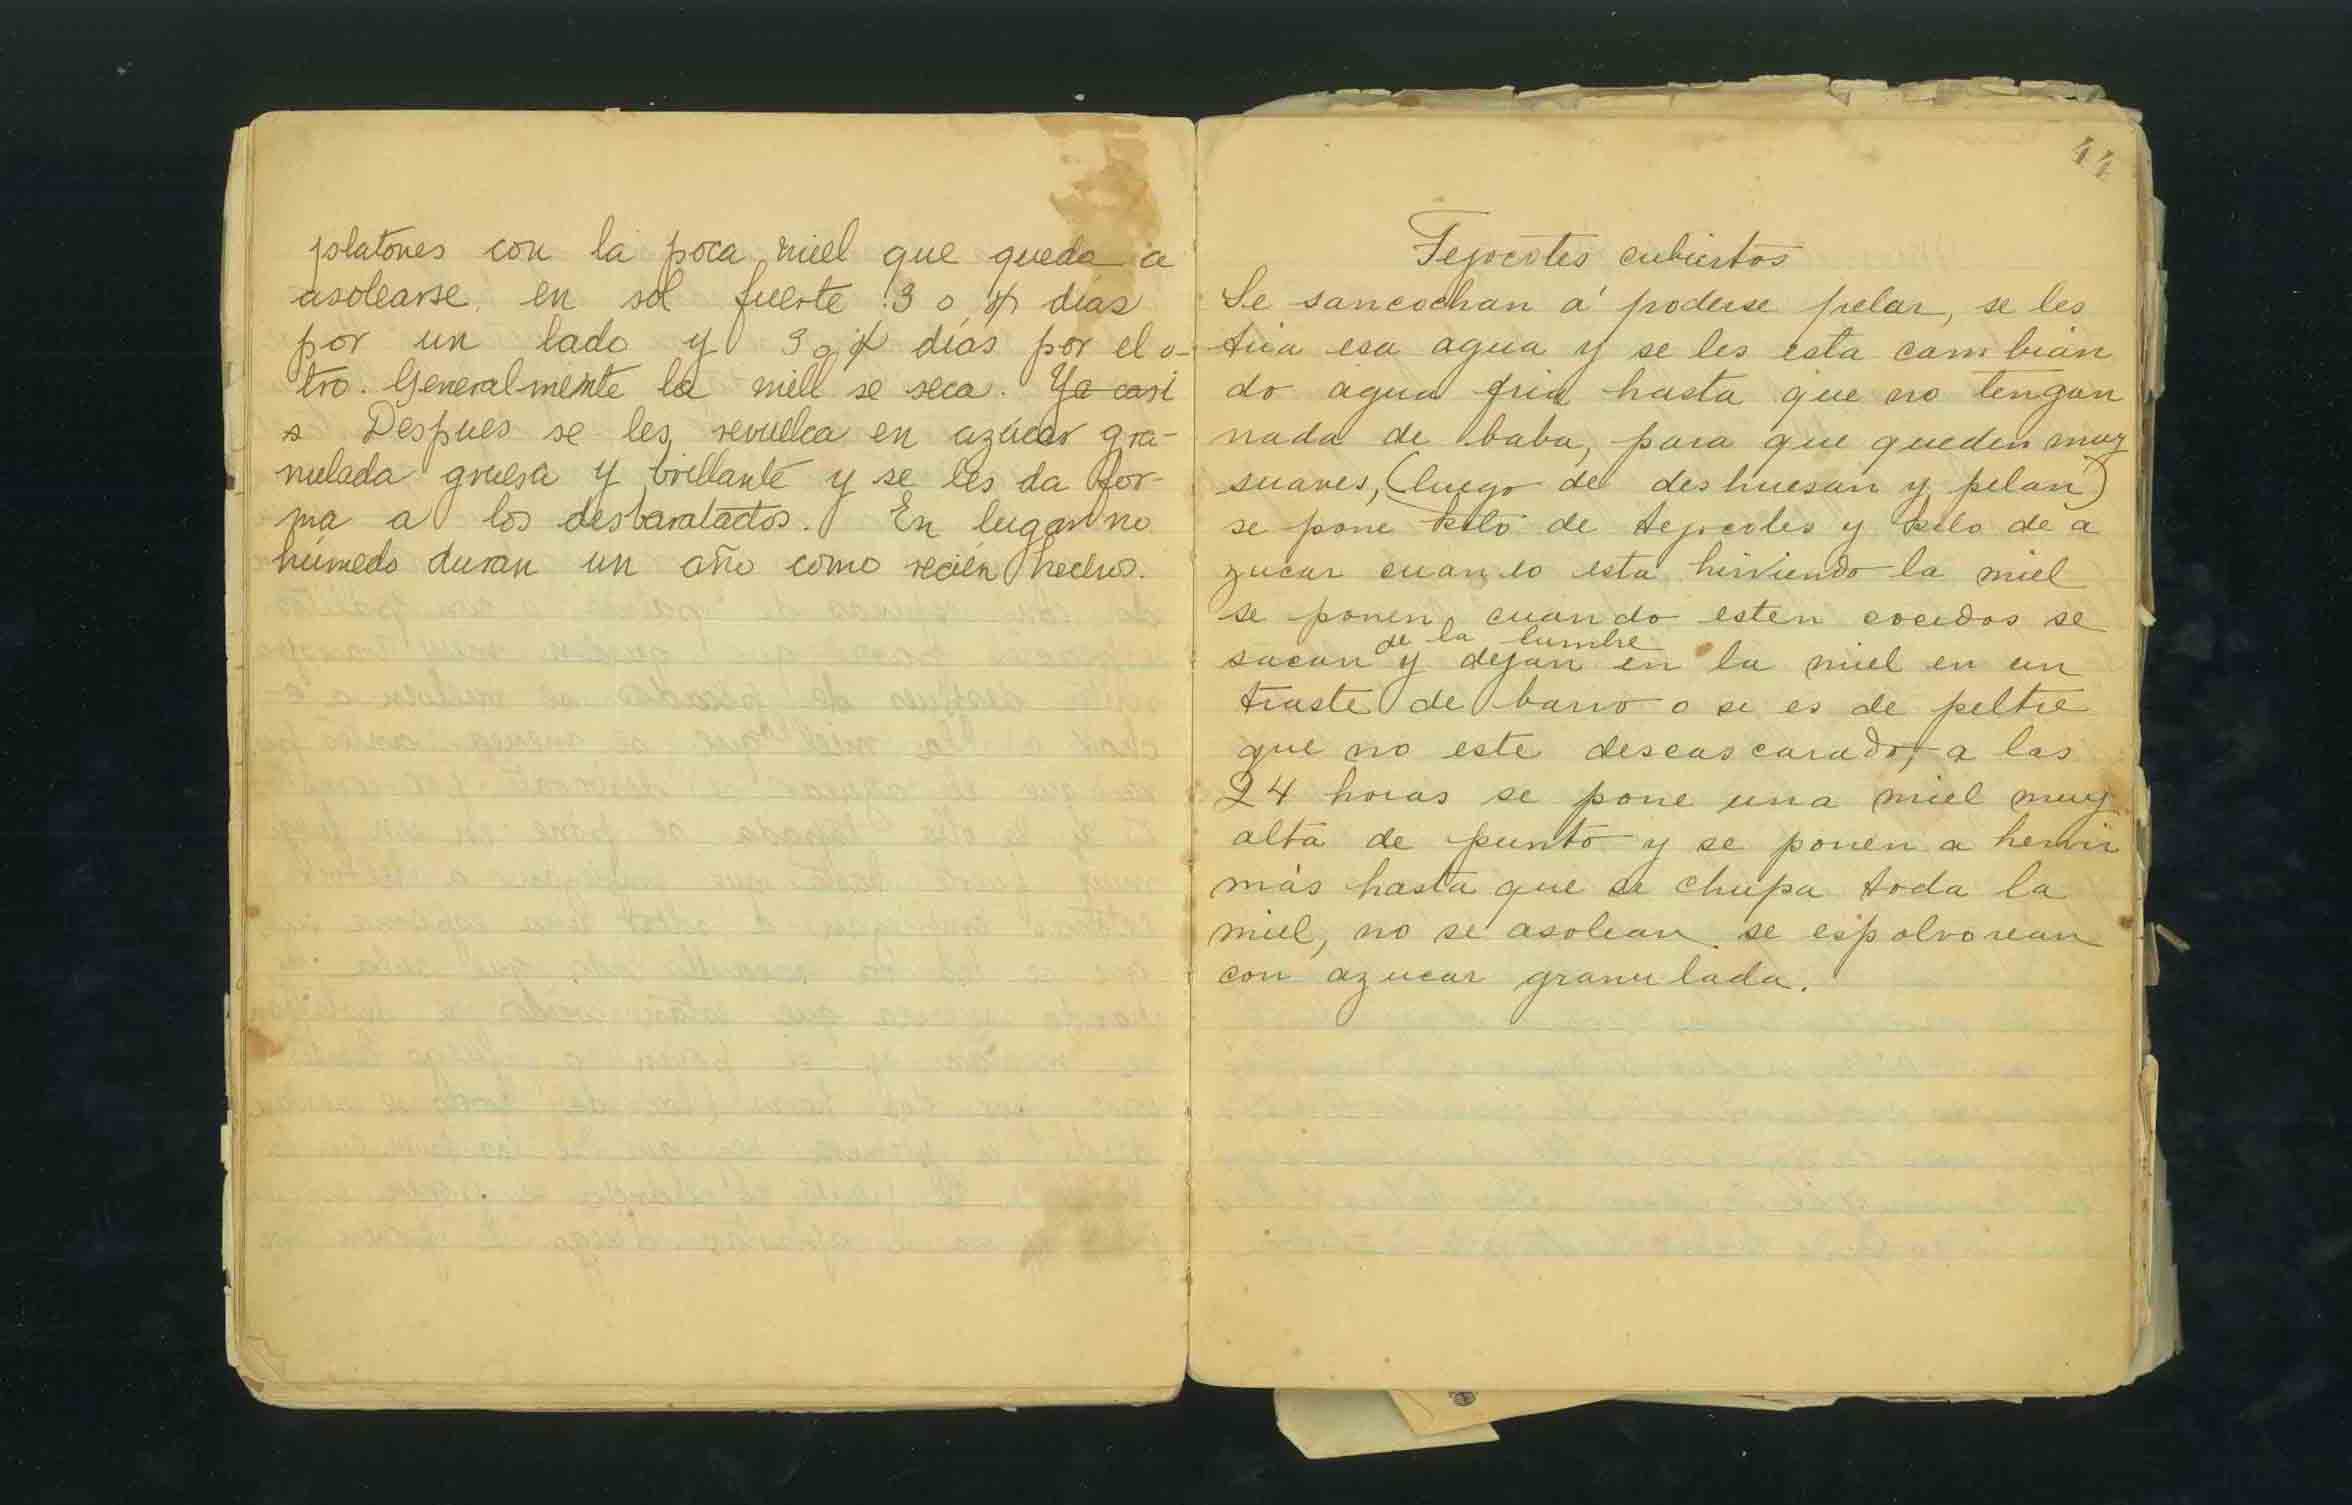 platones con la poca miel que queda a
asolearse en sol fuerte 3 o 4 días
por un lado y 3 o 4 días por el o-
tro. Generalmente la miel se seca. Ya casi
s Despues se les revuelca en azúcar gra-
nulada gruesa y brillante y se les da for-
ma a los desbaratados. En lugar no
húmedo duran un año como recién hechos.
44
Tejocotes cubiertos
Se sancochan á poderse pelar, se les
tira esa agua y se les esta cambian
do agua fria hasta que no tengan
nada de baba, para que queden muy
suaves, (luego de deshuesan y pelan)
se pone kilo de tejocotes y kilo de a
zucar cuando esta hirviendo la miel
se ponen, cuando esten cocidos se
de la lumbre
sacan y dejan en la miel en un
traste de barro o si es de peltre
que no este descascarado, a las
24 horas se pone una miel muy
alta de punto y se ponen a hervir
más hasta que se chupa toda la
miel, no se asolean se espolvorean
con azucar granulada.